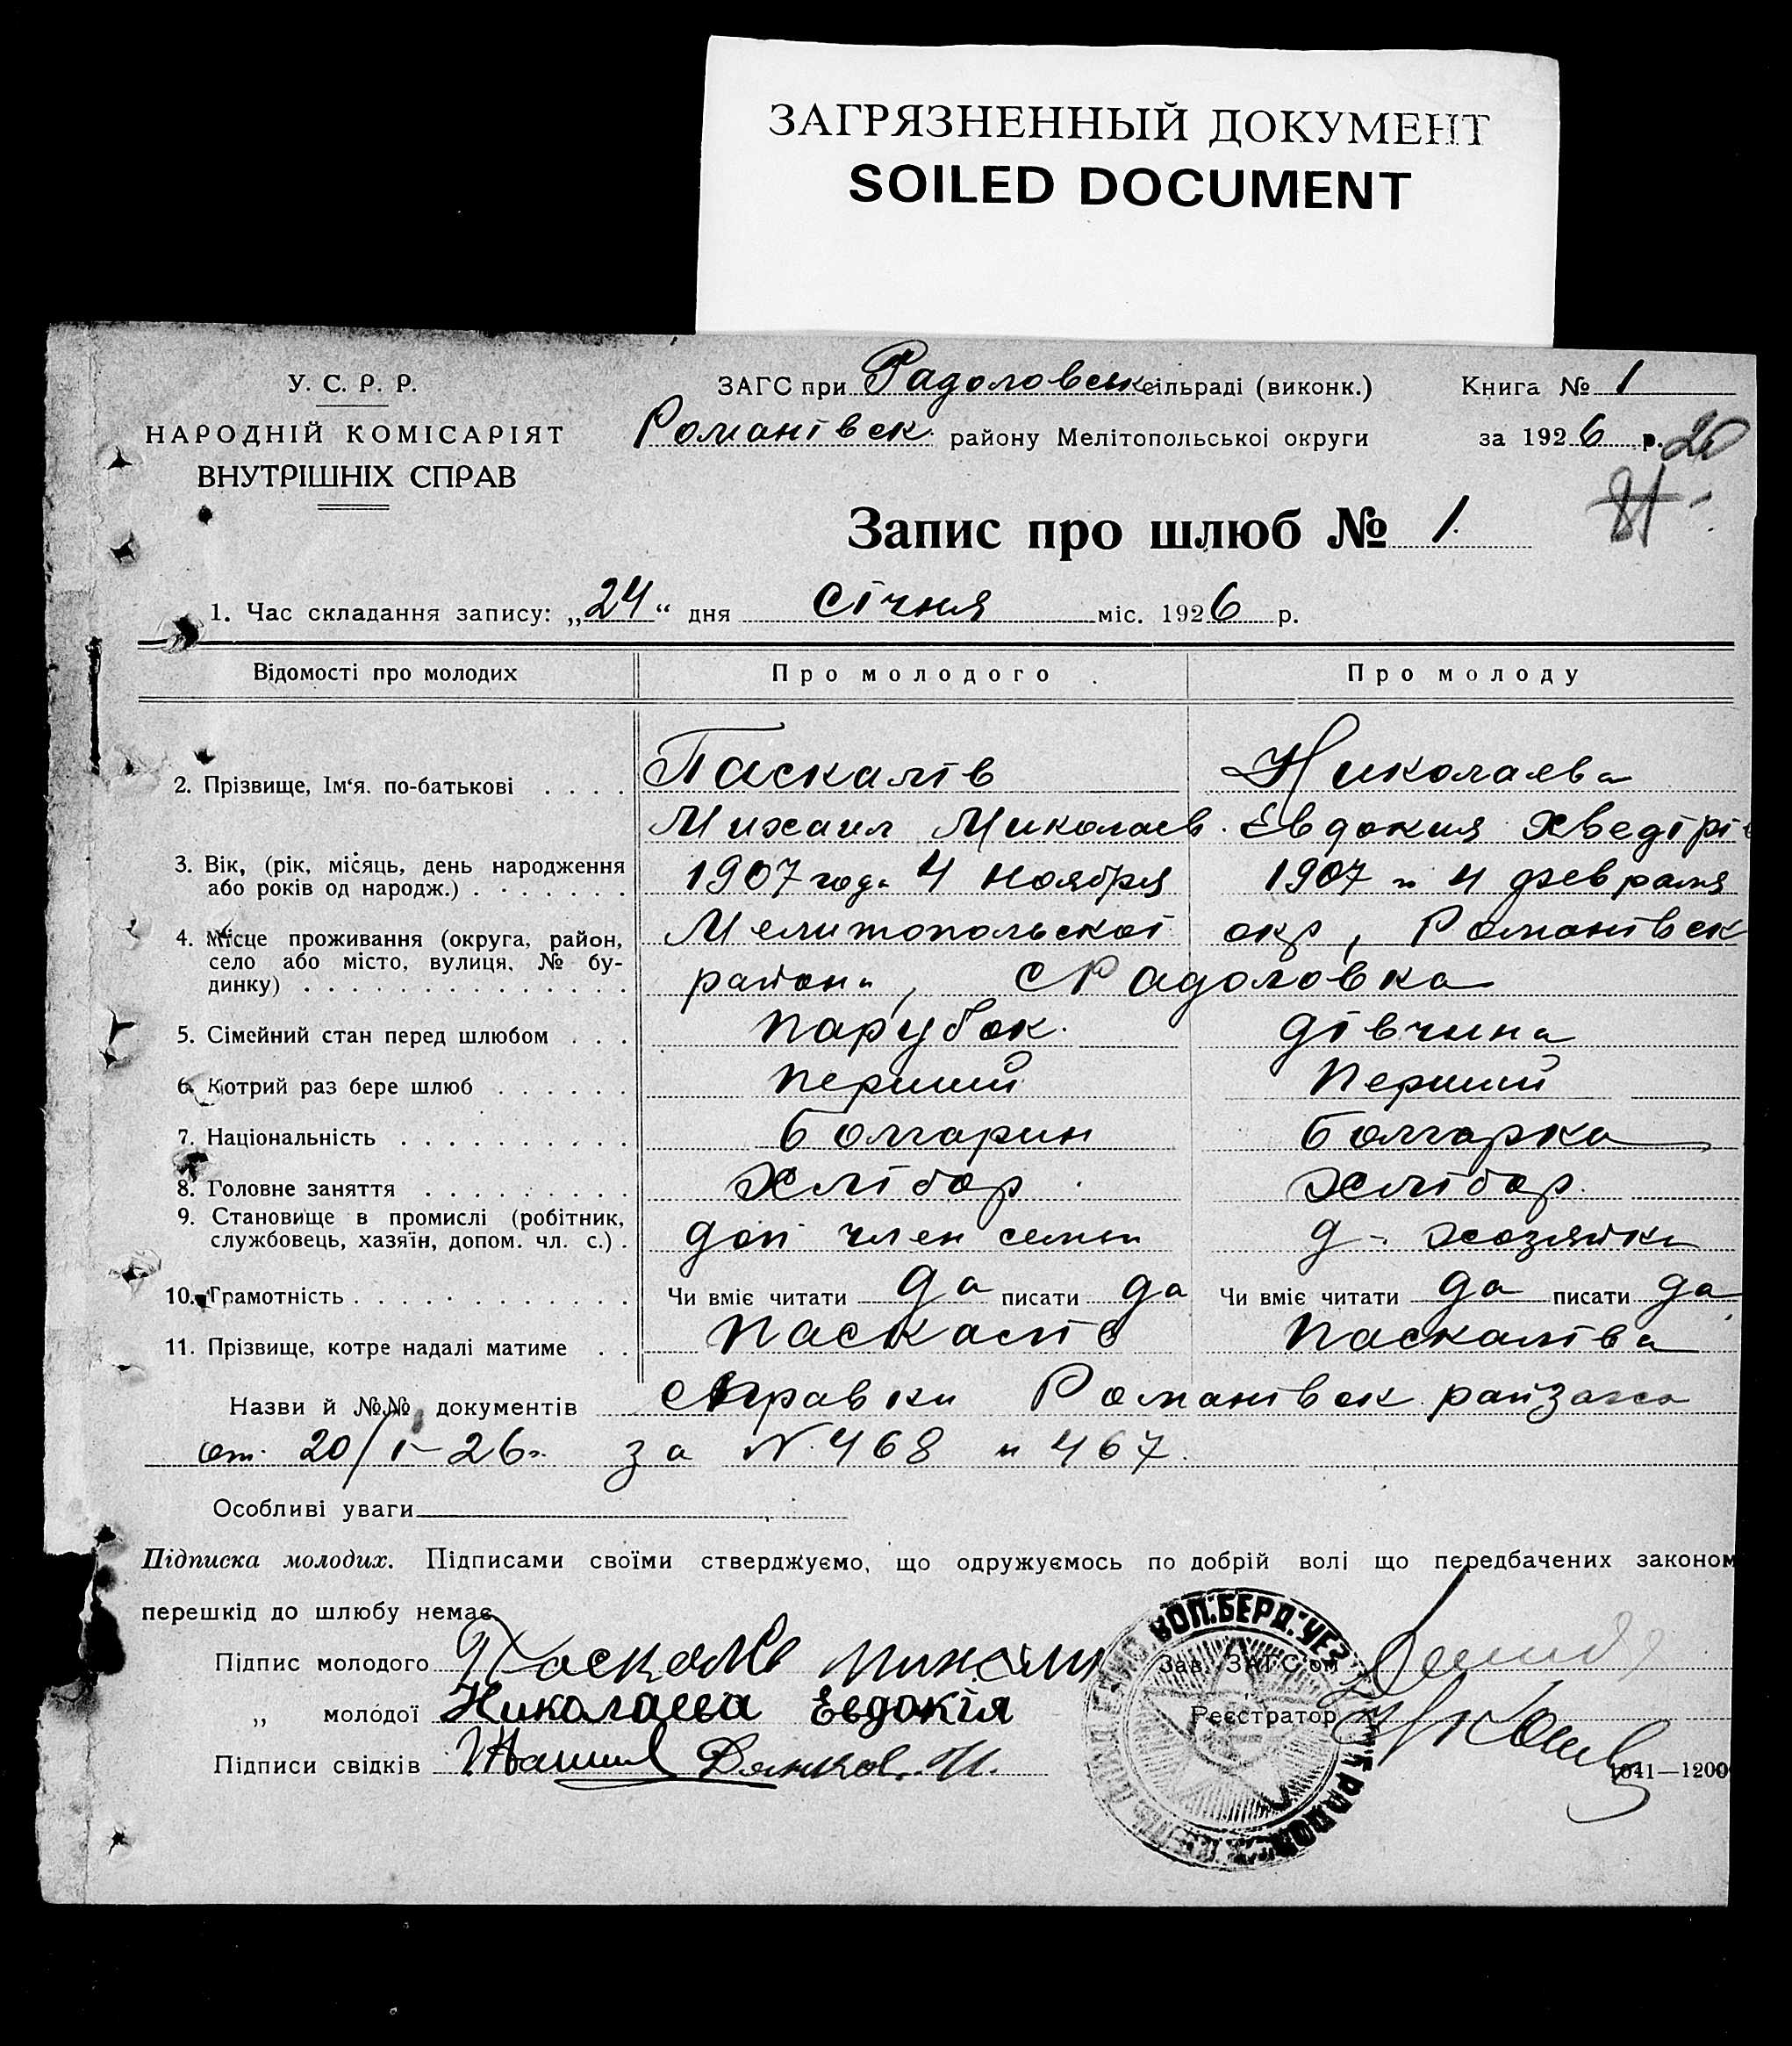 ЗАГРЯЗНЕННЫЙ ДОКУМЕНТ
SOILED DOCUMENT
У. С. Р. Р.
НАРОДНІЙ КОМІСАРІЯТ
ВНУТРІШНІХ СПРАВ
ЗАГС при Радоловськ сільраді (виконк.)
Романівск району Мелітопольської округи
Книга № 1
за 1926 р. 20
81
Запис про шлюб № 1
1. Час складання запису: „24“ дня Січня міс. 1926 р.
Відомості про молодих Про молодого Про молоду
2. Прізвище, Ім'я. по-батькові Паскалів Николаева
Михаил Миколаєв. Евдокия Хведірів
3. Вік, (рік, місяць, день народження або років од народж.) 1907 года 4 ноября 1907 г 4 февраля
4. Місце проживання (округа, район, Мелитопольскої окр, Романівск
село або місто, вулиця, № будинку) района, с Радоловка
5. Сімейний стан перед шлюбом парубок. дівчина
6. Котрий раз бере шлюб перший Перший
7. Національність болгарин болгарка
8. Головне заняття хлібор хлібор.
9. Становище в промислі (робітник, службовець, хазяїн, допом. чл. с.) доп член семьи д- хозяйка
10. Грамотність Чи вміє читати да писати да Чи вміє читати да писати да
11. Прізвище, котре надалі матиме Паскалів Паскаліва
Назви й №№ документів Справки Романівск райзагса
от 20/I-26г. за N. 468 и 467.
Особливі уваги
Підписка молодих. Підписами своїми стверджуємо, що одружуємось по добрій волі що передбачених законом
перешкід до шлюбу немає
Підпис молодого Паскалів Михаил Зав. ЗАГС'ом
„ молодої Николаева Евдокія Реєстратор
Підписи свідків Данков. И.
1041—1200
ВОЛ. БЕРД. УЕЗ.